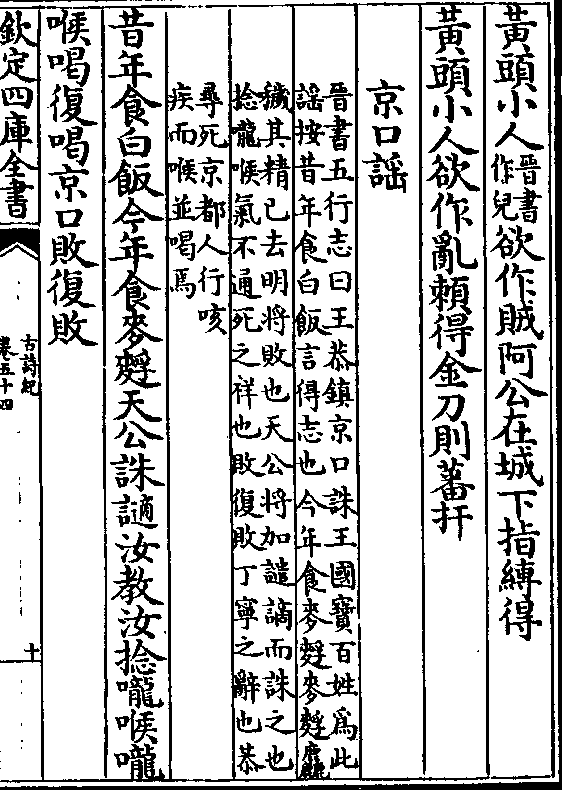 黃頭小人晉書作兒欲作賊阿公在城下指縛得
黃頭小人欲作亂賴得金刀則蕃扞
京口謡
晉書五行志曰王恭鎮京口誅王國寶百姓爲此
謡按昔年食白飯言得志也今年食麥䴸麥䴸麤
穢其精已去明將敗也天公將加譴謫而誅之也
捻嚨喉氣不通死之祥也敗復敗丁寧之辭也恭
尋死京都人行咳
疾而喉並喝焉
昔年食白飯今年食麥䴸天公誅讁汝教汝捻嚨喉嚨
喉喝復喝京口敗復敗
欽定四庫全書
古詩紀
卷五十四
十